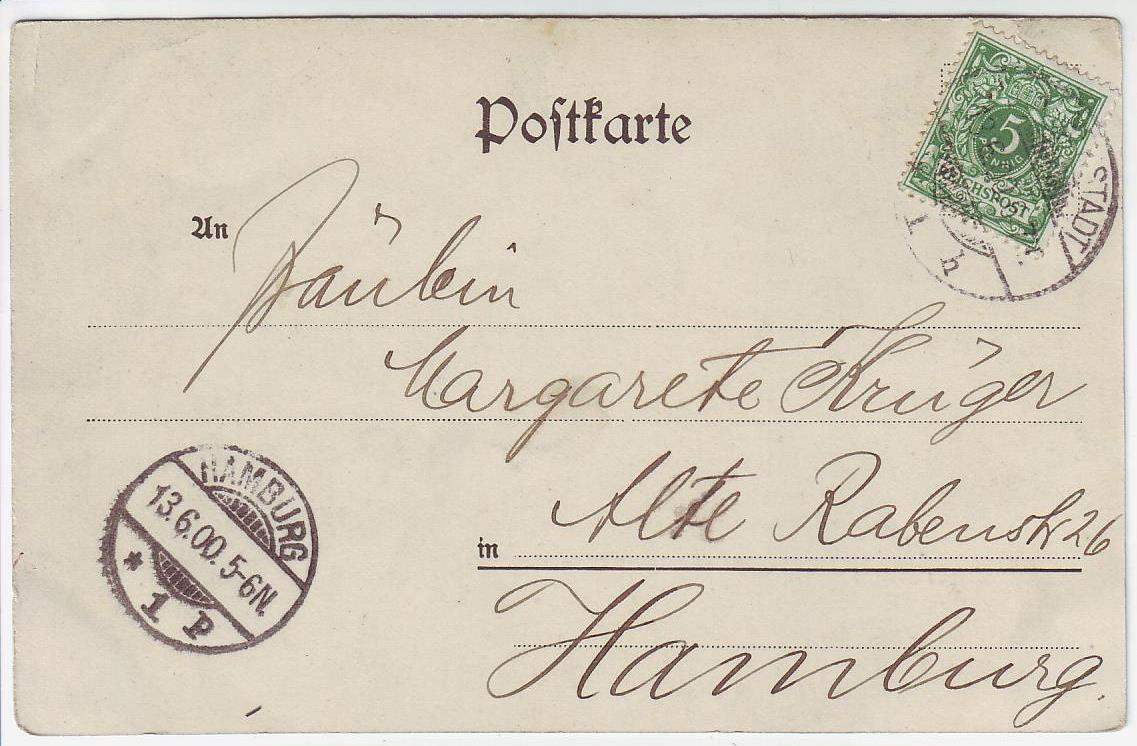 Postkarte
5
PFENNIG
REICHSPOST
STADT
1 h
An Fräulein
Margarete Krüger
Alte Rabenstr 26
in
Hamburg.
HAMBURG
13.6.00. 5-6N.
* 1 P